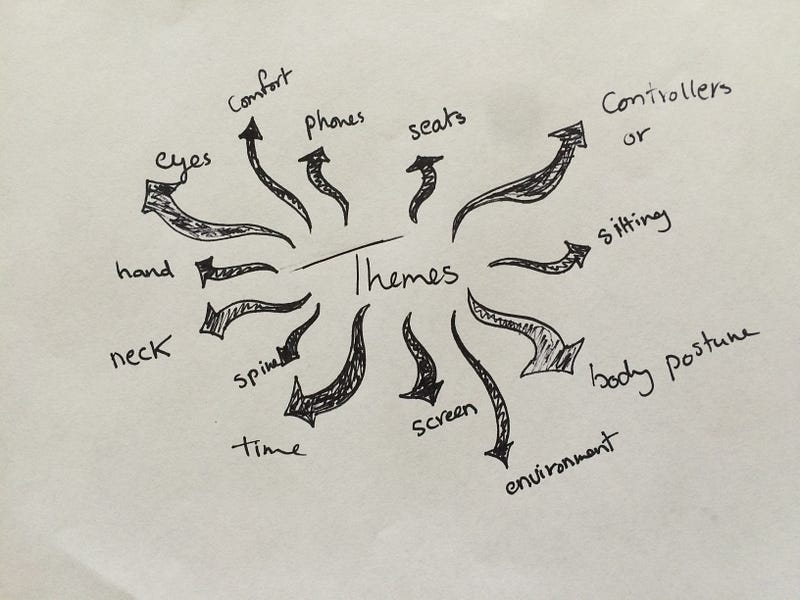 Comfort
phones
seats
Controllers
or
eyes
sitting
hand
Themes
neck
body posture
spine
screen
time
environment